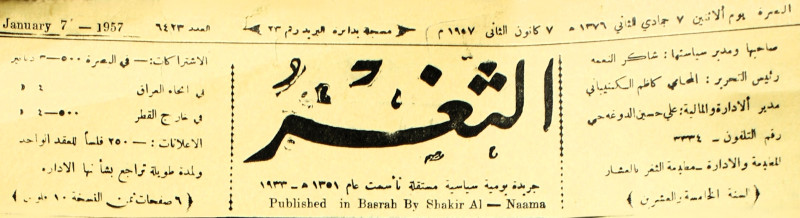 البصرة يوم الاثنين ٧ جمادي الثاني ١٣٧٦ هـ ٧ كانون الثاني ١٩٥٧ م ) مسجلة بدائرة البريد رقم ٢٣ العدد ٦٤٢٣ January 7 — 1957
صاحبها ومدير سياستها : شاكر النعمه
رئيس التحرير : المحامي كاظم
مدير الادارة والمالية : علي حسين
رقم التلفون – ٣٣٣٤
المطبعة والادارة – مطبعة الثغر بالعشار
( السنة الخامسة والعشرين )
الثغر
جريدة يومية سياسية مستقلة تأسست عام ١٣٥١ هـ – ١٩٣٣
Published in Basrah By Shakir Al — Naama
الاشتراكات : – في البصرة ٥٠٠–٣ دنانير
في انحاء العراق ٤ »
في خارج القطر ٥٠٠–٤ »
الاعلانات : – ٢٥٠ فلساً للعقد الواحد
ولمدة طويلة تراجع بشأنها الاداره
( ٦ صفحات ثمن النسخة ١٠ فلوس )